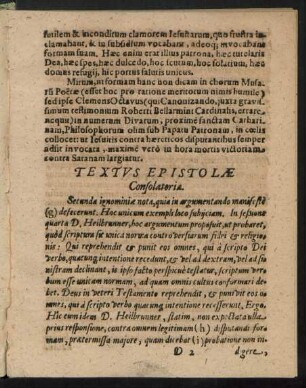 futilem & inconditum clamorem Jesuitarum, quo frustra in-
clamabant, & in subsidium vocabant, adeoq; invocabant
formam suam. Hæc enim erat illius patrona, hæc tutelaris
Dea, hæc spes, hæc dulcedo, hoc scutum, hoc solatium, hæc
domus refugij, hic portus salutis unicus.
Mirum, ni formam hanc bonam dicam in chorum Musa-
rũ Poëticæ (esset hoc pro ratione meritorum nimis humile)
sed ipse Clemens Octavus (qui Canonizando, juxta gravis-
simum testimonium Roberti Bellarmini Cardinalis, errare
neqq;) in numerum Divarum, proximè sanctam Cathari-
nam, Philosophorum olim sub Paparu Patronam, in cœlis
collocet: ut Jesuitis contra hæreticos disputantibus semper
adsit invocata, maximè verò in hora mortis victoriam
contra Satanam largiatur.
TEXTVS EPISTOLÆ
Consolatoriæ.
Secunda ignominiæ nota, quia in argumentando manifestè
(g) defecerunt. Hoc unicum exempli loco subjiciam. In sessione
quarta D. Heilbrunner, hoc argumentum proposuit, ut probaret,
quòd scriptura sit unica norma controversiarum fidei & religio-
nis: Qui reprehendit & punit eos omnes, qui à scripto Dei
verbo, quacunq; intentione recedunt, & vel ad dextram, vel ad si-
nistram declinant, is ipso facto perspicuè testatur, scriptum ver-
bum esse unicam normam, ad quam omnis cultus conformari de-
bet. Deus in veteri Testamento reprehendit, & punivit eos o-
mnes, qui à scripto verbo quacunq; intentione recesserunt, Ergo.
Hic cum idem D. Heilbrunner, statim, non expectata ulla
prius responsione, contra omnem legitimum (h) disputandi for-
mam, prætermissa majore, quam dicebat (i) probatione non in-
D 2 digere,